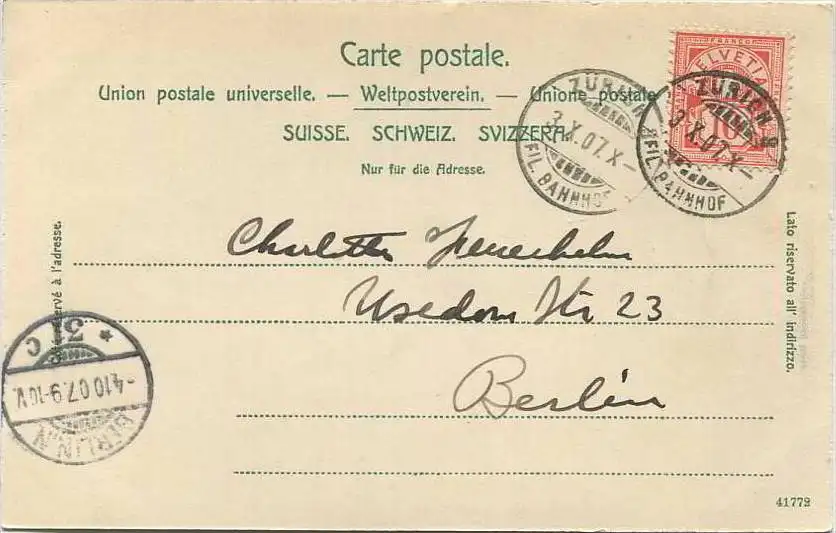 Carte postale.
Union postale universelle. — Weltpostverein. — Unione postale
SUISSE. SCHWEIZ. SVIZZERA.
Nur für die Adresse.
HELVETIA
FRANCO
10
ZÜRICH 9
3.X.07.X–
FIL. BAHNHOF
ZÜRICH 9
3.X.07.X–
FIL. BAHNHOF
à l'adresse.
Lato riservato all' indirizzo.
Charlotte
Usedom Str 23
Berlin
* 31 C
-4.10.07.9-10V.
BERLIN N
41772